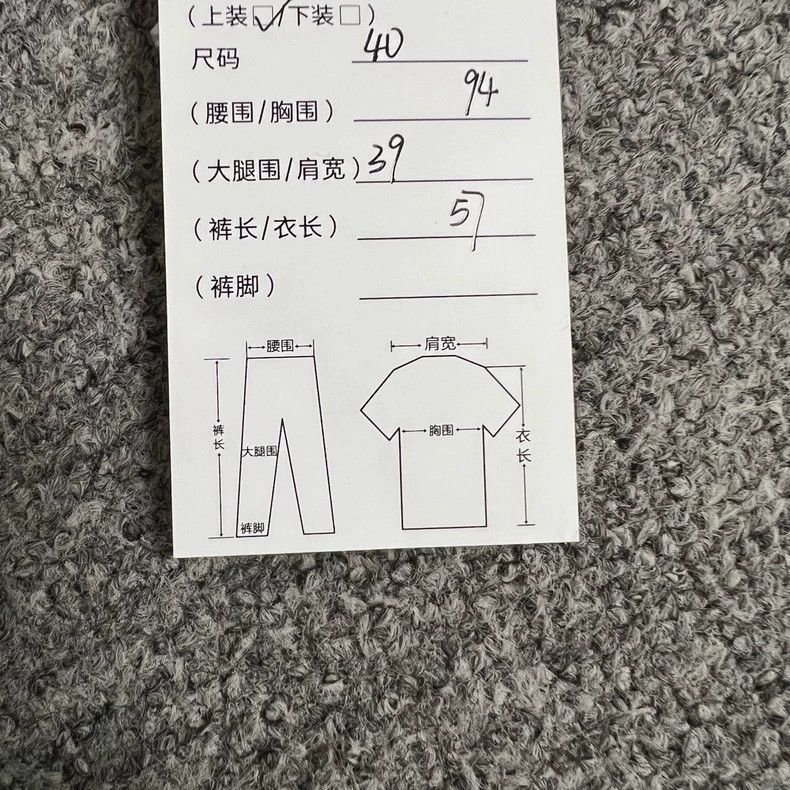 (上装☑/下装□)
尺码 40
(腰围/胸围) 94
(大腿围/肩宽) 39
(裤长/衣长) 57
(裤脚)
腰围
肩宽
裤长
大腿围
裤脚
胸围
衣长